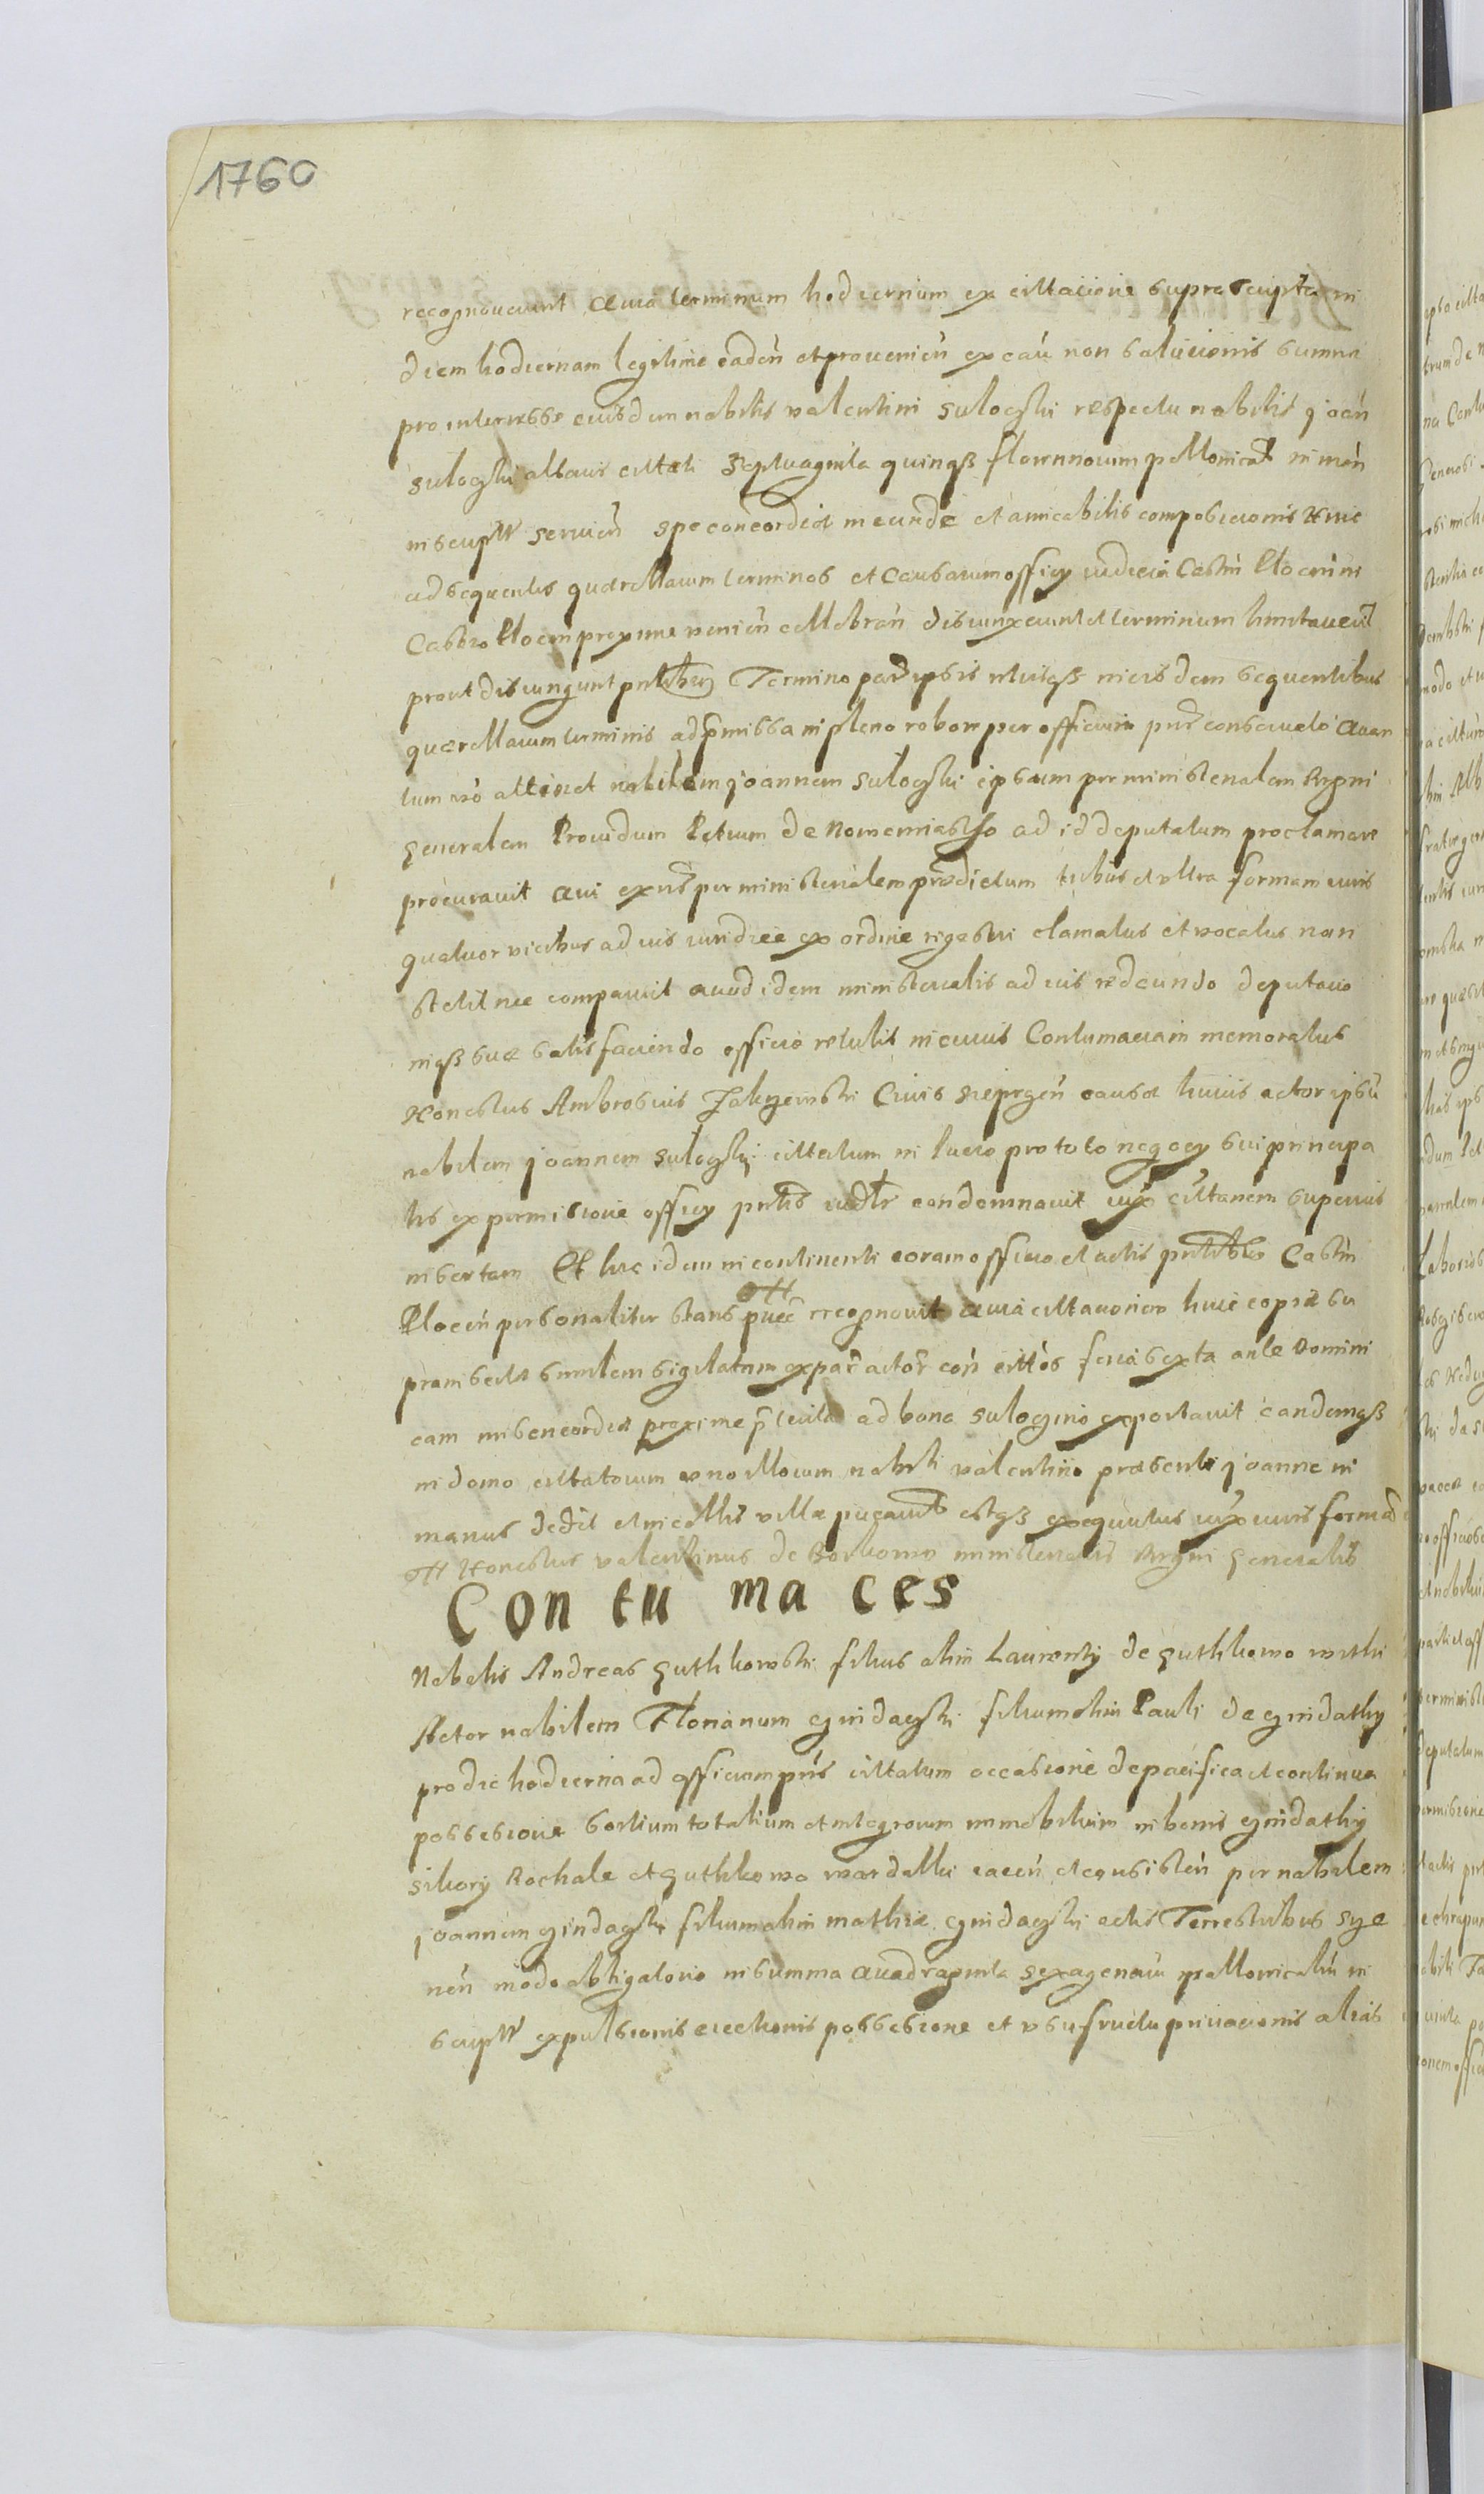 1760
recognoverunt Quia terminum hodiernum ex cittacione suprascripta in
diem hodiernam legitime caden̄ et provenien̄ ex cau̅ non solucionis summa
pro interesse eiusdem nobilis valentini suloczki respectu nobilis joan̄
suloczki alterius cittati Septuaginta quinqз florennorum pollonical in mem̄
inscript servien̄ spe concordia ineunde et amicabilis composicionis Huic
ad sequentes quærellarum terminos et Causarum officy iudicia Castrn̄ Plocen̄ in
Castro Plocen̄ proxime venien̄ cellebran̄ disiunxerunt et terminum limitaver̄
prout disiungunt pntibus Termino par̄ ipsis utrisqз in eisdem sequentibus
quærellarum terminis ad p̄missa in pleno robore per officium pns̄ conservato Quan
tum vero attinet nobilem joannem suloczki ipsum per ministerialem Regni
generalem Providum Petrum de Nowemiasto ad id deputatum proclamare
procuravit Qui ex ns̄ per ministerialem prædictum tribus et ultra formam iuris
quatuor vicibus ad ius iuridice ex ordine regestri clamatus et vocatus non
stetit nec comparuit Quod idem ministerialis ad ius redeundo deputatio
niqз suæ satisfaciendo officio retulit in cuius Contumaciam memoratus
Honestus Ambrosius Zakrzewski Civis Sieprgen̄ causæ huius actor ipsū
nobilem joannem suloczki cittatum in lucro pro toto negocy sui principa
lis ex permissione officy pntis iudlr condemnavit iux̄ cittanem superius
insertam Et hic idem in continenti coram officio et actis pntibus Castrn̄
Plocen̄ personaliter stans pn̄ec̄ recognovit Quia cittacionem huic copiæ su
prainsertæ similem sigilatam ex par̄ actor̄ con̄ citt̄os feria sexta ante Domini
cam misericordia proxime p̄terita ad bona sulocyno exportavit eandemqз
in domo cittatorum uno illorum nobili valentino præsenti joanne in
manus dedit et in collis villæ publicavit estqз exequutus iux̄ iuris formā
Honestus valentinus de Borkowo ministerialis Regni generalis
Con tu ma ces
Nobilis Andreas Guthkowski filius olim Laurenty de Guthkowo withi
Actor nobilem Florianum gzindaczki filium olim Pauli de gzindathy
pro die hodierna ad officium pns̄ cittatum occasione de pacifica et continua
possesione sortium totalium et integrorum immobilium in bonis gzindathy
sikory Rochale et Guthkowo wardalki iacen̄ et consisten̄ per nobilem
joannem gzindaczki filium olim mathiæ gzindaczki actis Terrestribus sze
nen̄ modo obligatorio in summa Quadraginta sexagenarū pollonicaliū in
script expulsionis eiectionis possesione et usufructu privacionis alias